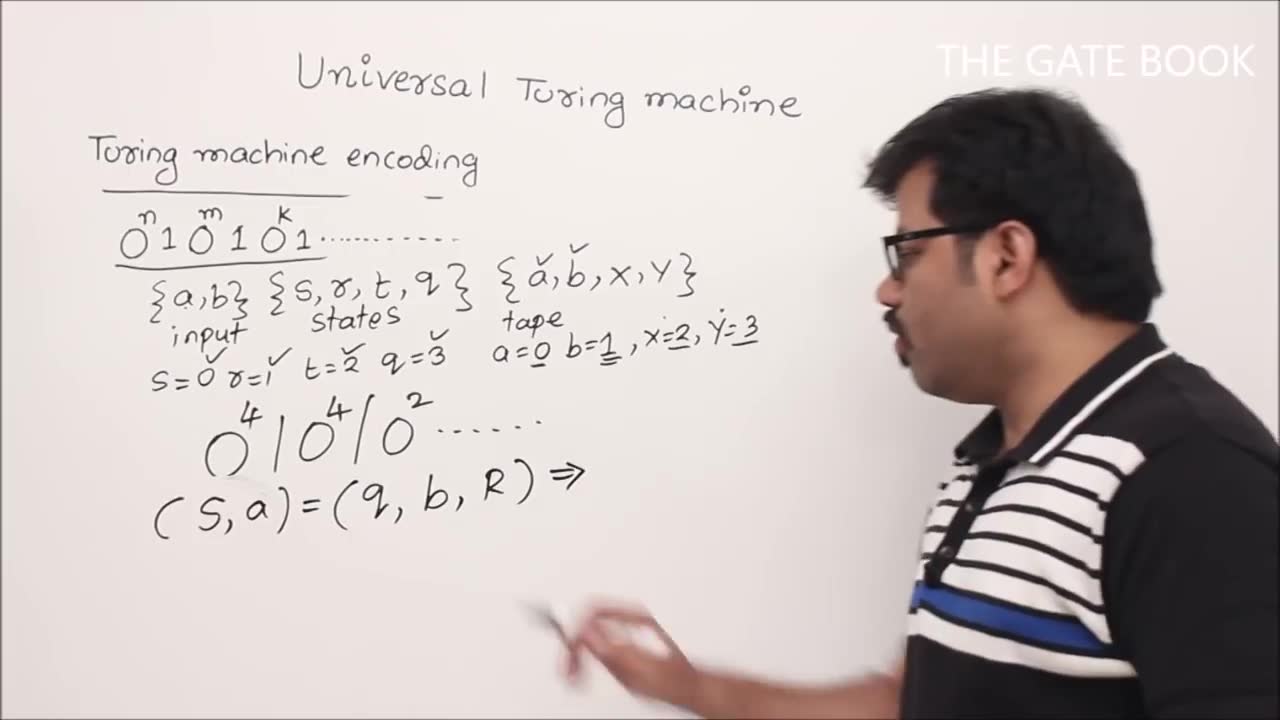 THE GATE BOOK
Universal Turing machine
Turing machine encoding
0ⁿ 1 0ᵐ 1 0ᵏ 1 ..............
{a,b} {s, r, t, q} {a, b, x, y}
input states tape
s=0 r=1 t=2 q=3 a=0 b=1, x=2, y=3
0⁴ | 0⁴ | 0² ......
(s, a) = (q, b, R) ⇒